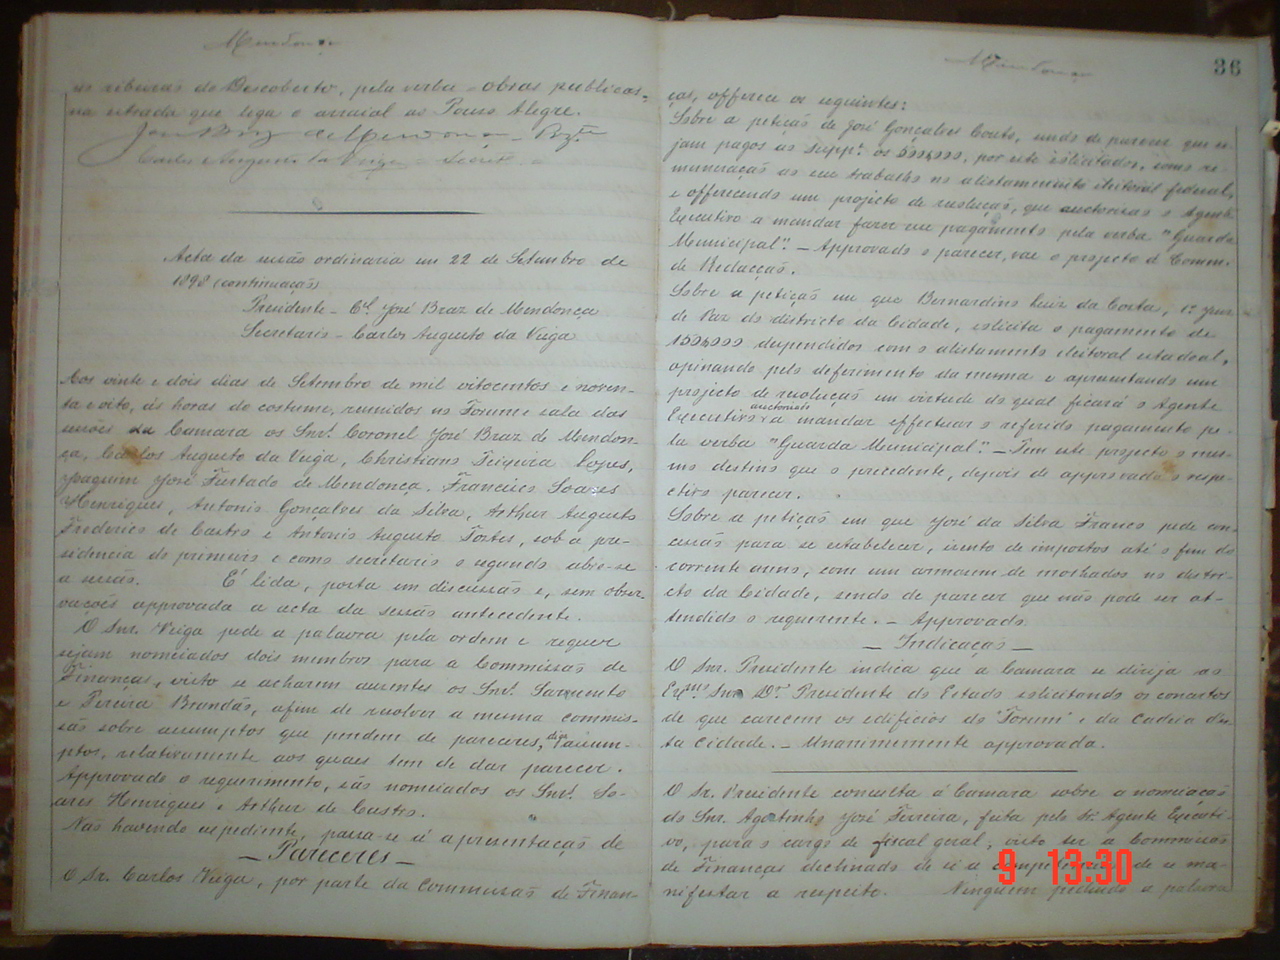 Mendonça
as ribeiras do Descoberto, pela verba - obras publicas,
na estrada que liga o arraial ao Pouso Alegre.
José Braz de Mendonça - Pizte
Carlos Augusto da Veiga - Secret.
Acta da sessão ordinaria em 22 de Setembro de
1898 (continuação)
Presidente - Cel. José Braz de Mendonça
Secretario - Carlos Augusto da Veiga
Aos vinte e dois dias de Setembro de mil oitocentos e noven-
ta e oito, ás horas do costume, reunidos no Forum e sala das
sessões da Camara os Snrs. Coronel José Braz de Mendon-
ça, Carlos Augusto da Veiga, Christiano Teixeira Lopes,
Joaquim José Furtado de Mendonça, Francisco Soares
Henriques, Antonio Gonçalves da Silva, Arthur Augusto
Frederico de Castro e Antonio Augusto Fortes, sob a pre-
sidencia do primeiro e como secretario o segundo abre-se
a sessão. E' lida, posta em discussão e, sem obser-
vações approvada a acta da sessão antecedente.
O Snr. Veiga pede a palavra pela ordem e requer
sejam nomeiados dois membros para a Commissão de
Finanças, visto se acharem ausentes os Snrs. Sarmento
e Pereira Brandão, afim de resolver a mesma commis-
são sobre assumptos que pendem de pareceres, assum-
ptos, relativamente aos quaes tem de dar parecer.
Approvado o requerimento, são nomeiados os Snrs. So-
ares Henriques e Arthur de Castro.
Não havendo expediente, passa-se á apresentação de
- Pareceres -
O Sr. Carlos Veiga, por parte da Commissão de Finan-
Mendonça
36
ças, offerece os seguintes:
Sobre a petição de José Gonçalves Couto, sendo de parecer que se-
jam pagos ao Suppe. os 500$000, por este solicitados, como re-
muneração ao seu trabalho no alistamento eleitoral federal,
e offerecendo um projecto de resolução, que auctorisa o Agente
Executivo a mandar fazer esse pagamento pela verba "Guarda
Municipal". - Approvado o parecer, vae o projecto á Comm.
de Redacção.
Sobre a petição em que Bernardino Luiz da Costa, 1º Juiz
de Paz do districto da Cidade, solicita o pagamento de
150$000 despendidos com o alistamento eleitoral estadoal,
opinando pelo deferimento da mesma e apresentando um
projecto de resolução em virtude do qual ficará o Agente
Executivo auctorisado a mandar effectuar o referido pagamento pe-
la verba "Guarda Municipal". - Tem este projecto o mes-
mo destino que o precedente, depois de approvado o respe-
ctivo parecer.
Sobre a petição em que José da Silva Franco pede con-
cessão para se estabelecer, isento de impostos até o fim do
corrente anno, com um armazem de molhados no distri-
cto da Cidade, sendo de parecer que não pode ser at-
tendido o requerente. - Approvado.
- Indicação -
O Snr. Presidente indica que a Camara se dirija ao
Exmo. Snr. Dr. Presidente do Estado solicitando os concertos
de que carecem os edificios do "Forum" e da Cadeia des-
ta Cidade. - Unanimemente approvada.
O Sr. Presidente consulta á Camara sobre a nomeiação
do Snr. Agostinho José Ferreira, feita pelo Sr. Agente Executi-
vo, para o cargo de fiscal geral, visto ter a Commissão
de Finanças declinado de si a competencia de se ma-
nifestar a respeito. Ninguem pedindo a palavra
9 13:30